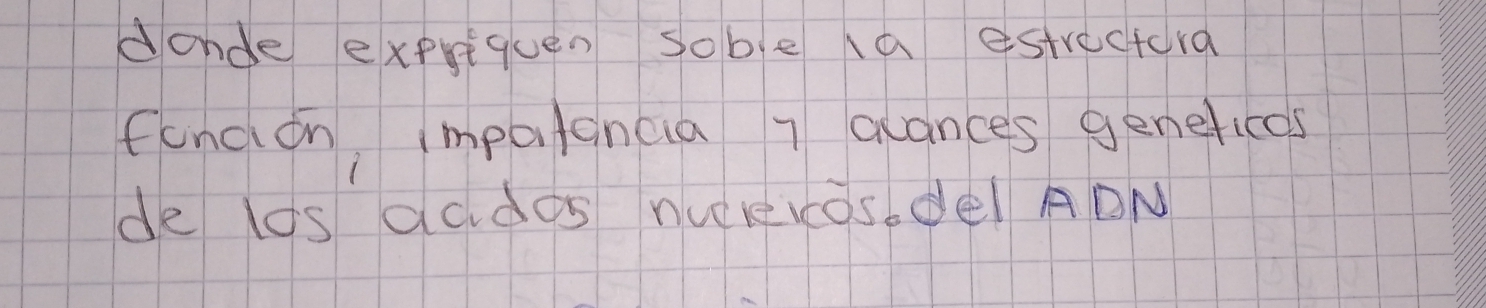 donde expliquen sobre la estructura
función, importancia y avances geneticos
de los acidos nucleicos. del ADN